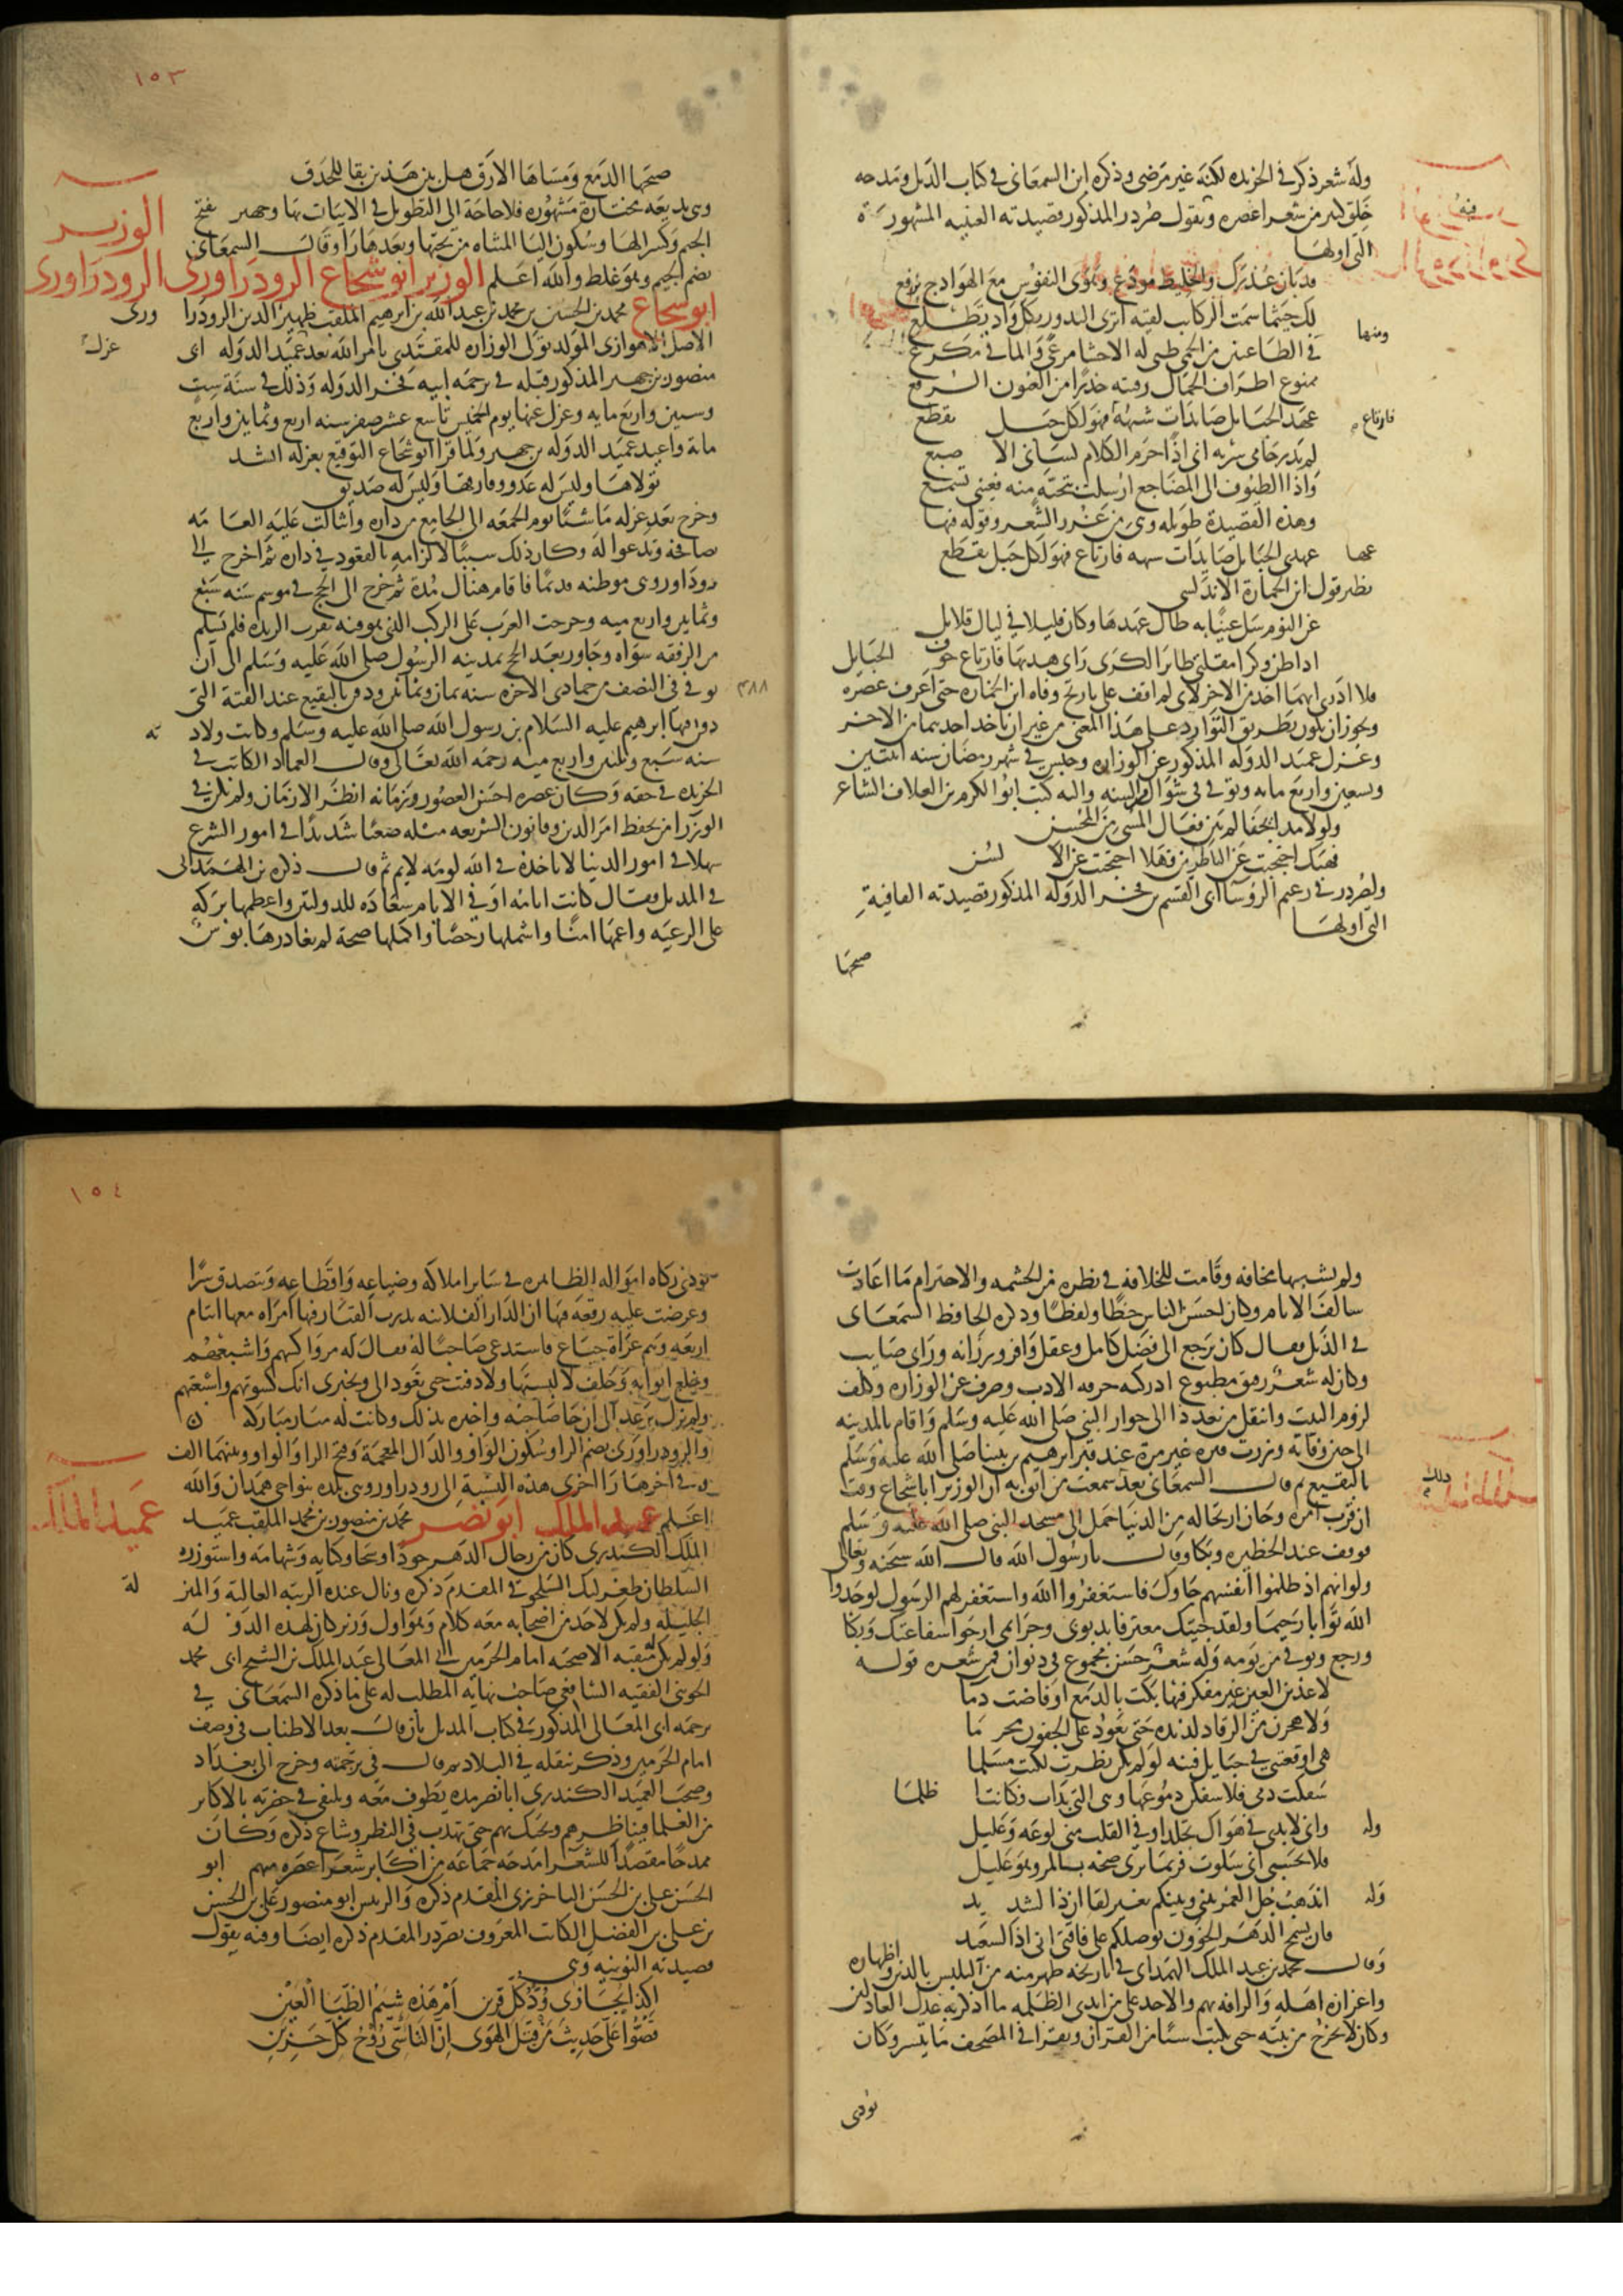 وله شعر ذكر في الخريده لكنه غير مرضي وذكره ابن السمعاني في كتاب الذيل ومدحه
خلق كبير من شعرا عصره وفيه يقول صردر المذكور قصيدته العينيه المشهورة
التي اولها
قد بان عذرك والخليط مودع وهوى النفوس مع الهوادج يرفع
لك حيثما سمت الركايب لفتة اترى البدور بكل واد تطلع
ومنها
في الظاعنين من الحمى ظبي له الاحشا مرعى والما في مكرع
ممنوع اطراف الجمال رقيبه حذرا من العيون البرقع
عهد الحبايل صايدات شبهه فارتاع فهو لكل حبل يقطع
لم يدر حامي سربه اني اذا حرم الكلام لساني الاصبع
واذا الطيوف الى المضاجع ارسلت بتحية منه فعيني تسمع
وهذه القصيدة طويله وهي من غرر الشعر وقوله فيها
عهدي الحبايل صايدات شبهه فارتاع فهو لكل حبل يقطع
نظر قول ابن الحمارة الاندلسي
عن النوم سل عينا به طال عهدها وكان قليلا في ليال قلايل
اذا ظن وكرا مقلتي طاير الكرى راى هدبها فارتاع خوف الحبايل
فلا ادري ايهما اخذ من الاخر لاني لم اقف على تاريخ وفاه ابن الحماره حتى اعرف عصره
ويجوز ان يكون بطريق التوارد على هذا المعنى من غير ان ياخذ احدهما من الاخر
وعزل عميد الدوله المذكور عن الوزاره وحبس في شهر رمضان سنه اثنتين
وتسعين واربع مايه وتوفي في شوال من السنه واليه كتب ابو الكرم بن العلاف الشاعر
ولولا مدايحنا لم يبن فعال المسي من المحسن
فهبك احتجبت عن الناظرين فهلا احتجبت عن الالسن
ولصردر في زعيم الروسا ابي القسم بن فخر الدوله المذكور قصيدته القافية
التي اولها
صبحها
١٥٣
صبحها الدمع ومساها الارق هل بين هذين بقا للحدق
وهي بديعه مختارة مشهوره فلا حاجة الى التطويل في الاتيان بها وجهير بفتح
الجيم وكسر الها وسكون اليا المثناه من تحتها وبعدها را وقال السمعاني
بضم الجيم وهو غلط والله اعلم الوزير ابو شجاع الروذراوري
الوزير
الروذراوري
ابو شجاع محمد بن الحسين بن محمد بن عبد الله بن ابرهيم الملقب ظهير الدين الروذراوري
الاصل الاهوازي المولد تولى الوزاره للمقتدي بامر الله بعد عزل عميد الدوله ابي
منصور بن جهير المذكور قبله في ترجمة ابيه فخر الدوله وذلك في سنة ست
وسبعين واربع مايه وعزل عنها يوم الخميس تاسع عشر صفر سنه اربع وثمانين واربع
ماية واعيد عميد الدوله بن جهير ولما قرا ابو شجاع التوقيع بعزله انشد
تولاها وليس له عدو وفارقها وليس له صديق
وخرج بعد عزله ماشيا يوم الجمعه الى الجامع من داره وانثالت عليه العامه
تصافحه وتدعوا له وكان ذلك سببا لالزامه بالقعود في داره ثم اخرج الى
روذراور وهي موطنه قديما فاقام هناك مدة ثم خرج الى الحج في موسم سنه سبع
وثمانين واربع ميه وخرجت العرب على الركب الذي هو فيه بقرب الربذه فلم يسلم
من الرفقه سواه وجاور بعد الحج بمدينه الرسول صلى الله عليه وسلم الى ان
٤٨٨
توفي في النصف من جمادى الاخره سنه ثمان وثمانين ودفن بالبقيع عند القبة التي
دفن فيها ابرهيم عليه السلام بن رسول الله صلى الله عليه وسلم وكانت ولادته
سنه سبع وثلثين واربع ميه رحمه الله تعالى وقال العماد الكاتب في
الخريده في حقه وكان عصره احسن العصور وزمانه انضر الازمان ولم يكن في
الوزرا من يحفظ امر الدين وقانون الشريعه مثله صعبا شديدا في امور الشرع
سهلا في امور الدنيا لا تاخذه في الله لومه لايم ثم قال ذكره بن الهمداني
في الذيل فقال كانت ايامه اوفى الايام سعاده للدولتين واعظمها بركه
على الرعيه واعمها امنا واشملها رخصا واكملها صحة لم يغادرها بوس
ولم يشبها مخافه وقامت للخلافه في نظره من الحشمه والاحترام ما اعادت
سالف الايام وكان احسن الناس خطا ولفظا وذكره الحافظ السمعاني
في الذيل فقال كان يرجع الى فضل كامل وعقل وافر ورزانه وراي صايب
وكان له شعر رقيق مطبوع ادركته حرفه الادب وصرف عن الوزاره وكلف
لزوم البيت وانتقل من بغداذ الى جوار النبي صلى الله عليه وسلم واقام بالمدينه
الى حين وفاته وزرت قبره غير مرة عند قبر ابرهيم بن نبينا صلى الله عليه وسلم
بالبقيع ثم قال السمعاني بعد ذلك سمعت من اثق به ان الوزير ابا شجاع وقت
ان قرب امره وحان ارتحاله من الدنيا حمل الى مسجد النبي صلى الله عليه وسلم
فوقف عند الحظيره وبكا وقال يا رسول الله قال الله سبحنه وتعالى
ولو انهم اذ ظلموا انفسهم جاوك فاستغفروا الله واستغفر لهم الرسول لوجدوا
الله توابا رحيما ولقد جيتك معترفا بذنوبي وجرايمي ارجوا شفاعتك وبكا
ورجع وتوفي من يومه وله شعر حسن مجموع في ديوان فمن شعره قوله
لاعذبن العين غير مفكر فيها بكت بالدمع او فاضت دما
ولاهجرن من الرقاد لذيذه حتى يعود على الجفون محرما
هي اوقعتني في حبايل فتنه لو لم تكن نظرت لكنت مسلما
سفكت دمي فلاسفكن دموعها وهي التي بدات فكانت اظلما
وله واني لابدي في هواك تجلدا وفي القلب مني لوعه وغليل
فلا تحسبي اني سلوت فربما يرى صحه بالمرو وهو عليل
وله ايذهب جل العمر بيني وبينكم بغير لقا ان ذا لشديد
فان يسمح الدهر الخوون بوصلكم على فاقتي اني اذا لسعيد
وقال محمد بن عبد الملك الهمداني في تاريخه ظهر منه من التلبس بالدين واظهاره
واعزاز اهله والرافه بهم والاخذ على من ايدي الظلمه ما اذكر به عدل العادلين
وكان لا يخرج من بيته حتى يكتب شيا من القران ويقرا في المصحف ما تيسر وكان
يودي
١٥٤
يودي زكاه امواله الظاهره في ساير املاكه وضياعه واقطاعه ويتصدق سرا
وعرضت عليه رقعة فيها ان الدار الفلانيه بدرب القيار فيها امراه معها ايتام
اربعه وهم عراة جياع فاستدعى صاحبا له فقال له مر واكسهم واشبعهم
وخلع اثوابه وحلف لا لبستها ولا دفيت حتى تعود الي وتخبرني انك كسوتهم واشبعتهم
ولم يزل يرعد الى ان جا صاحبه واخبره بذلك وكانت له مبار مباركه
والروذراوري بضم الرا وسكون الواو والذال المعجمة وفتح الرا والواو وبينهما الف
وفي اخرها را اخرى هذه النسبة الى روذراور وهي بلده بنواحي همدان والله
اعلم عميد الملك ابو نصر محمد بن منصور بن محمد الملقب عميد
عميد الملك
الملك الكندري كان من رجال الدهر جودا وسخا وكتابه وشهامه واستوزره
السلطان طغرلبك السلجوقي المقدم ذكره ونال عنده الرتبه العاليه والمنزله
الجليله ولم يكن لاحد من اصحابه معه كلام وهو اول وزير كان لهذه الدوله
ولو لم يكن له منقبه الا صحبه امام الحرمين ابي المعالي عبد الملك بن الشيخ ابي محمد
الجويني الفقيه الشافعي صاحب نهايه المطلب له على ما ذكره السمعاني في
ترجمه ابي المعالي المذكور في كتاب الذيل بان قال بعد الاطناب في وصف
امام الحرمين وذكر تنقله في البلاد ثم قال في ترجمته وخرج الى بغداد
وصحب العميد الكندري ابا نصر مده يطوف معه ويلتقي في حضرته بالاكابر
من العلما ويناظرهم وتحنك بهم حتى تهذب في النظر وشاع ذكره وكان
ممدحا مقصدا للشعرا مدحه جماعه من اكابر شعرا عصره منهم ابو
الحسن علي بن الحسن الباخرزي المقدم ذكره والريس ابو منصور علي بن الحسن
بن علي بن الفضل الكاتب المعروف بصردر المقدم ذكره ايضا وفيه يقول
قصيدته النونيه وهي
اكذا يجازى ود كل قرين ام هذه شيم الظبا العين
قصوا علي حديث من قتل الهوى ان التاسي روح كل حزين